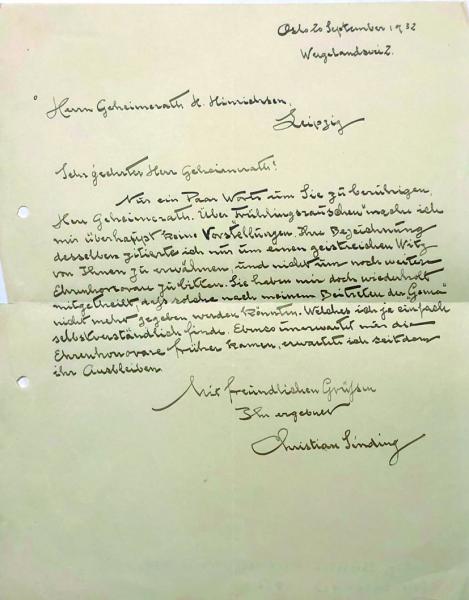 Oslo 20 September 1932
Wergelandsvei 2.
Herrn Geheimerath H. Hinrichsen,
Leipzig
Sehr geehrter Herr Geheimrath!
Nur ein Paar Worte um Sie zu beruhigen,
Herr Geheimerath. Über "Frühlingsrauschen" mache ich
mir überhaupt keine Vorstellungen. Ihre Bezeichnung
desselben zitierte ich nur um einen geistreichen Witz
von Ihnen zu erwähnen, und nicht um noch weitere
Ehrenhonorare zu bitten. Sie haben mir doch wiederholt
mitgetheilt, dass solche nach meinem Beitreten der "Gema"
nicht mehr gegeben werden könnten. Welches ich ja einfach
selbstverständlich finde. Ebenso unerwartet mir die
Ehrenhonorare früher kamen, erwartete ich seitdem
ihr Ausbleiben.
Mit freundlichen Grüssen
Ihr ergebner
Christian Sinding